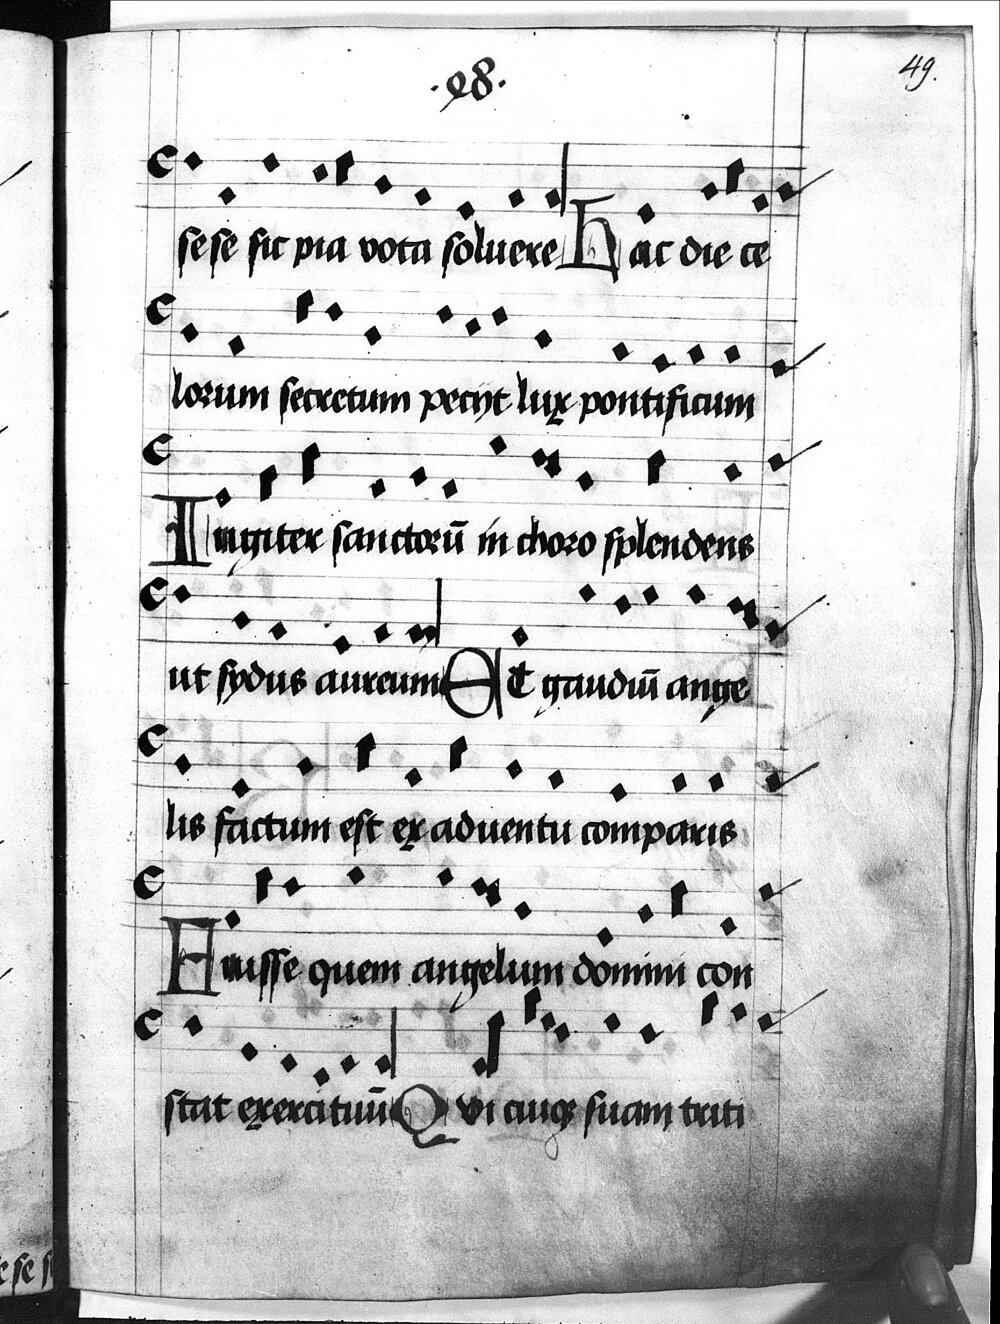 49.
.98.
sese sic pia vota soluere Hac die ce
lorum secretum petijt lux pontificum
Iugiter sanctorū in choro splendens
ut sydus aureum Et gaudiū ange
lis factum est ex aduentu comparis
Fuisse quem angelum domini con
stat exercituū Qui cuiq; suam triti